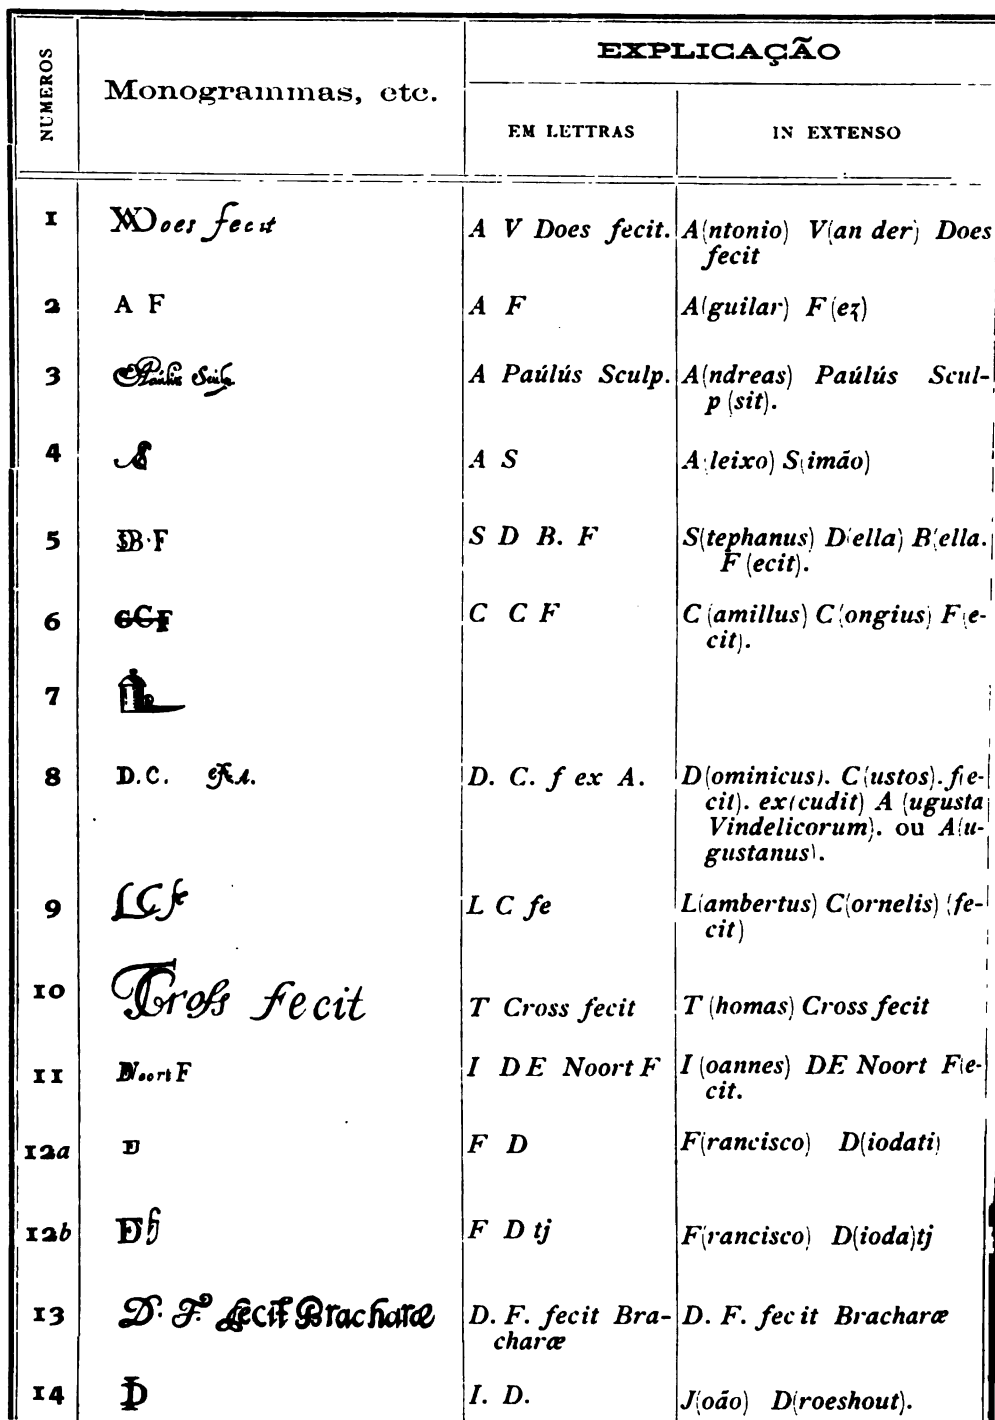 NUMEROS
Monogrammas, etc.
EXPLICAÇÃO
EM LETTRAS
IN EXTENSO
1 AVDoes fecit A V Does fecit. A(ntonio) V(an der) Does
fecit
2 A F A F A(guilar) F(ez)
3 APaúlús Sculp. A Paúlús Sculp. A(ndreas) Paúlús Scul-
p(sit).
4 AS A S A(leixo) S(imão)
5 SDB·F S D B. F S(tephanus) D(ella) B(ella.
F(ecit).
6 CCF C C F C(amillus) C(ongius) F(e-
cit).
7
8 D.C. f ex A. D. C. f ex A. D(ominicus). C(ustos). f(e-
cit). ex(cudit) A (ugusta
Vindelicorum). ou A(u-
gustanus).
9 LCfe L C fe L(ambertus) C(ornelis) (fe-
cit)
10 TCross fecit T Cross fecit T (homas) Cross fecit
11 DENoort F I DE Noort F I (oannes) DE Noort F(e-
cit.
12a FD F D F(rancisco) D(iodati)
12b FDtj F D tj F(rancisco) D(ioda)tj
13 D. F. fecit Bracharæ D. F. fecit Bra- D. F. fecit Bracharæ
charæ
14 ID I. D. J(oão) D(roeshout).